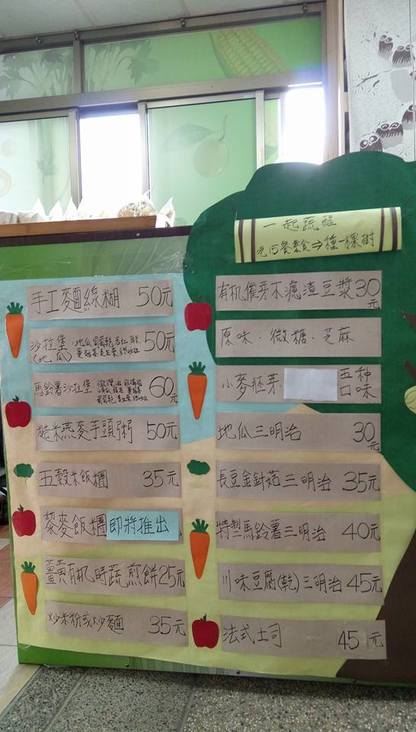 一起蔬醒
吃15餐素食⇒種一棵樹
手工麵線糊 50元
沙拉堡 50元
(地瓜)
馬鈴薯沙拉堡 60元
糙米燕麥芋頭粥 50元
五穀米飯糰 35元
藜麥飯糰 即將推出
薑黃有机時蔬煎餅25元
炒米粉或炒麵 35元
有机催芽不濾渣豆漿30元
原味．微糖．芝麻
小麥胚芽． 五種口味
地瓜三明治 30元
長豆金針菇三明治 35元
特製馬鈴薯三明治 40元
川味豆腐(乾)三明治45元
法式土司 45元